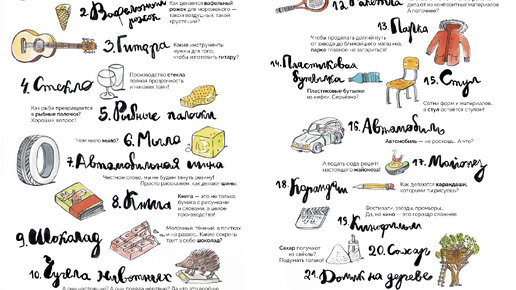 2. Вафельный рожок
Как делается вафельный
рожок для мороженого —
такой воздушный, такой
хрустящий?
3. Гитара
Какие инструменты
нужны для того,
чтобы изготовить гитару?
4. Стекло
Производство стекла
полная прозрачность
и никаких тайн!
5. Рыбные палочки
Как рыба превращается
в рыбные палочки?
Хороший вопрос!
6. Мыло
Чем мило мыло?
7. Автомобильная шина
Честное слово, мы не будем тянуть резину!
Просто расскажем, как делают шины.
8. Книга
Книга — это не только
бумага с рисунками
и словами, в целое
производство!
9. Шоколад
Молочный, тёмный, в плитках
и на развес... Какие секреты
таит в себе шоколад?
10. Чучела животных
А они настоящие? А они правда мёртвые? Да что это вообще
12. Ракетка
делают из композитных материалов
А поточнее?
13. Парка
Чтобы проделать долгий путь
от завода до ближайшего магазина,
парке главное не запариться!
14. Пластиковая бутылка
Пластиковые бутылки
из нефти. Серьёзно?
15. Стул
Сотни форм и материалов,
а стул остаётся стулом!
16. Автомобиль
Автомобиль — не роскошь. А что?
17. Майонез
А подать сюда рецепт
настоящего майонеза!
18. Карандаш
Как делаются карандаши,
которыми ты рисуешь?
19. Кинофильм
Вестпхалл, звёзды, премьеры.
Да, но кино — это гораздо сложнее.
20. Сахар
Сахар получают
из свёклы?
Подумать только!
21. Домик на дереве